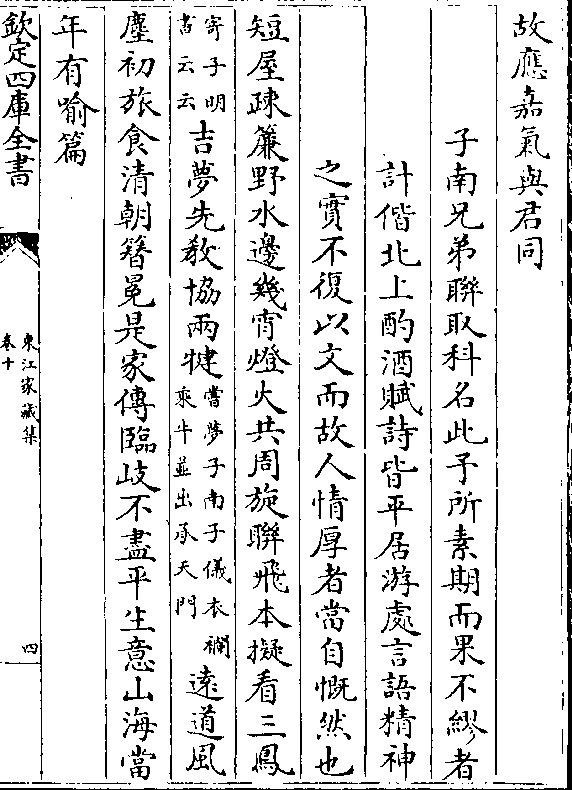 故應嘉氣與君同
子南兄弟聯取科名此予所素期而果不繆者
計偕北上酌酒賦詩皆平居游處言語精神
之實不復以文而故人情厚者當自慨然也
短屋疎簾野水邊幾宵燈火共周旋聯飛本擬看三鳳
寄子明
書云云
吉夢先教協兩犍
嘗夢子南子儀衣襴
乘牛並出承天門
遠道風
塵初旅食清朝簪冕是家傳臨歧不盡平生意山海當
年有喻篇
欽定四庫全書
東江家藏集
卷十
四